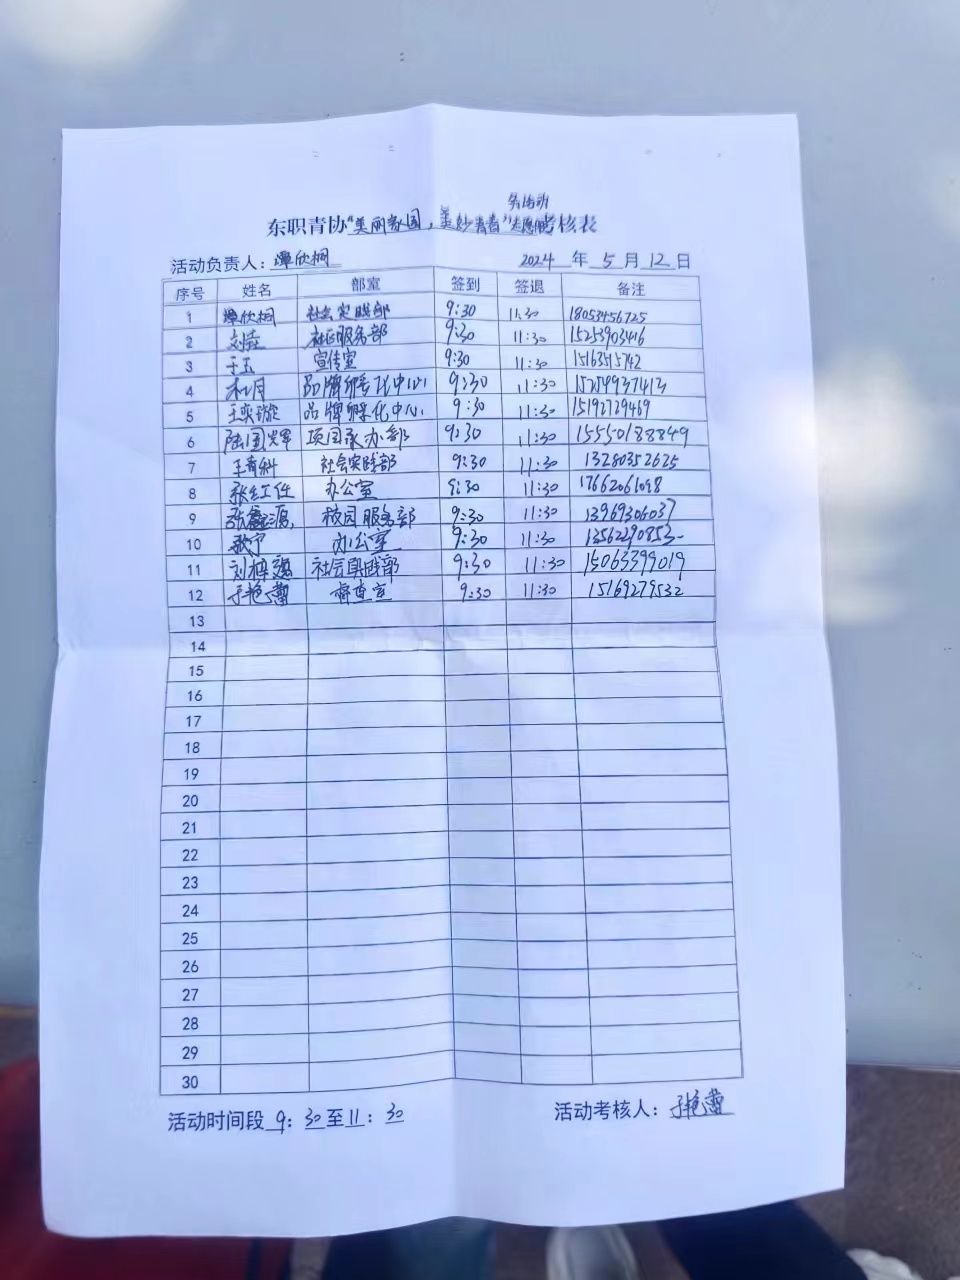 务活动
东职青协"美丽家园，美妙青春"志愿服考核表
活动负责人：谭欣桐 2024 年 5 月 12 日
序号 姓名 部室 签到 签退 备注
1 谭欣桐 社会实践部 9:30 11:30 18053456725
2 社区服务部 9:30 11:30 15253903416
3 于玉 宣传室 9:30 11:30 15163515742
4 品牌孵化中心 9:30 11:30 15254937413
5 王奕璇 品牌孵化中心 9:30 11:30 15192729469
6 陆国辉 项目承办部 9:30 11:30 15550188849
7 社会实践部 9:30 11:30 13280352625
8 张红任 办公室 9:30 11:30 17662061098
9 张鑫源 校园服务部 9:30 11:30 13969306037
10 办公室 9:30 11:30 13562290853
11 社会实践部 9:30 11:30 15063399019
12 于艳蕾 督查室 9:30 11:30 15169279532
13
14
15
16
17
18
19
20
21
22
23
24
25
26
27
28
29
30
活动时间段 9：30 至 11：30 活动考核人：于艳蕾